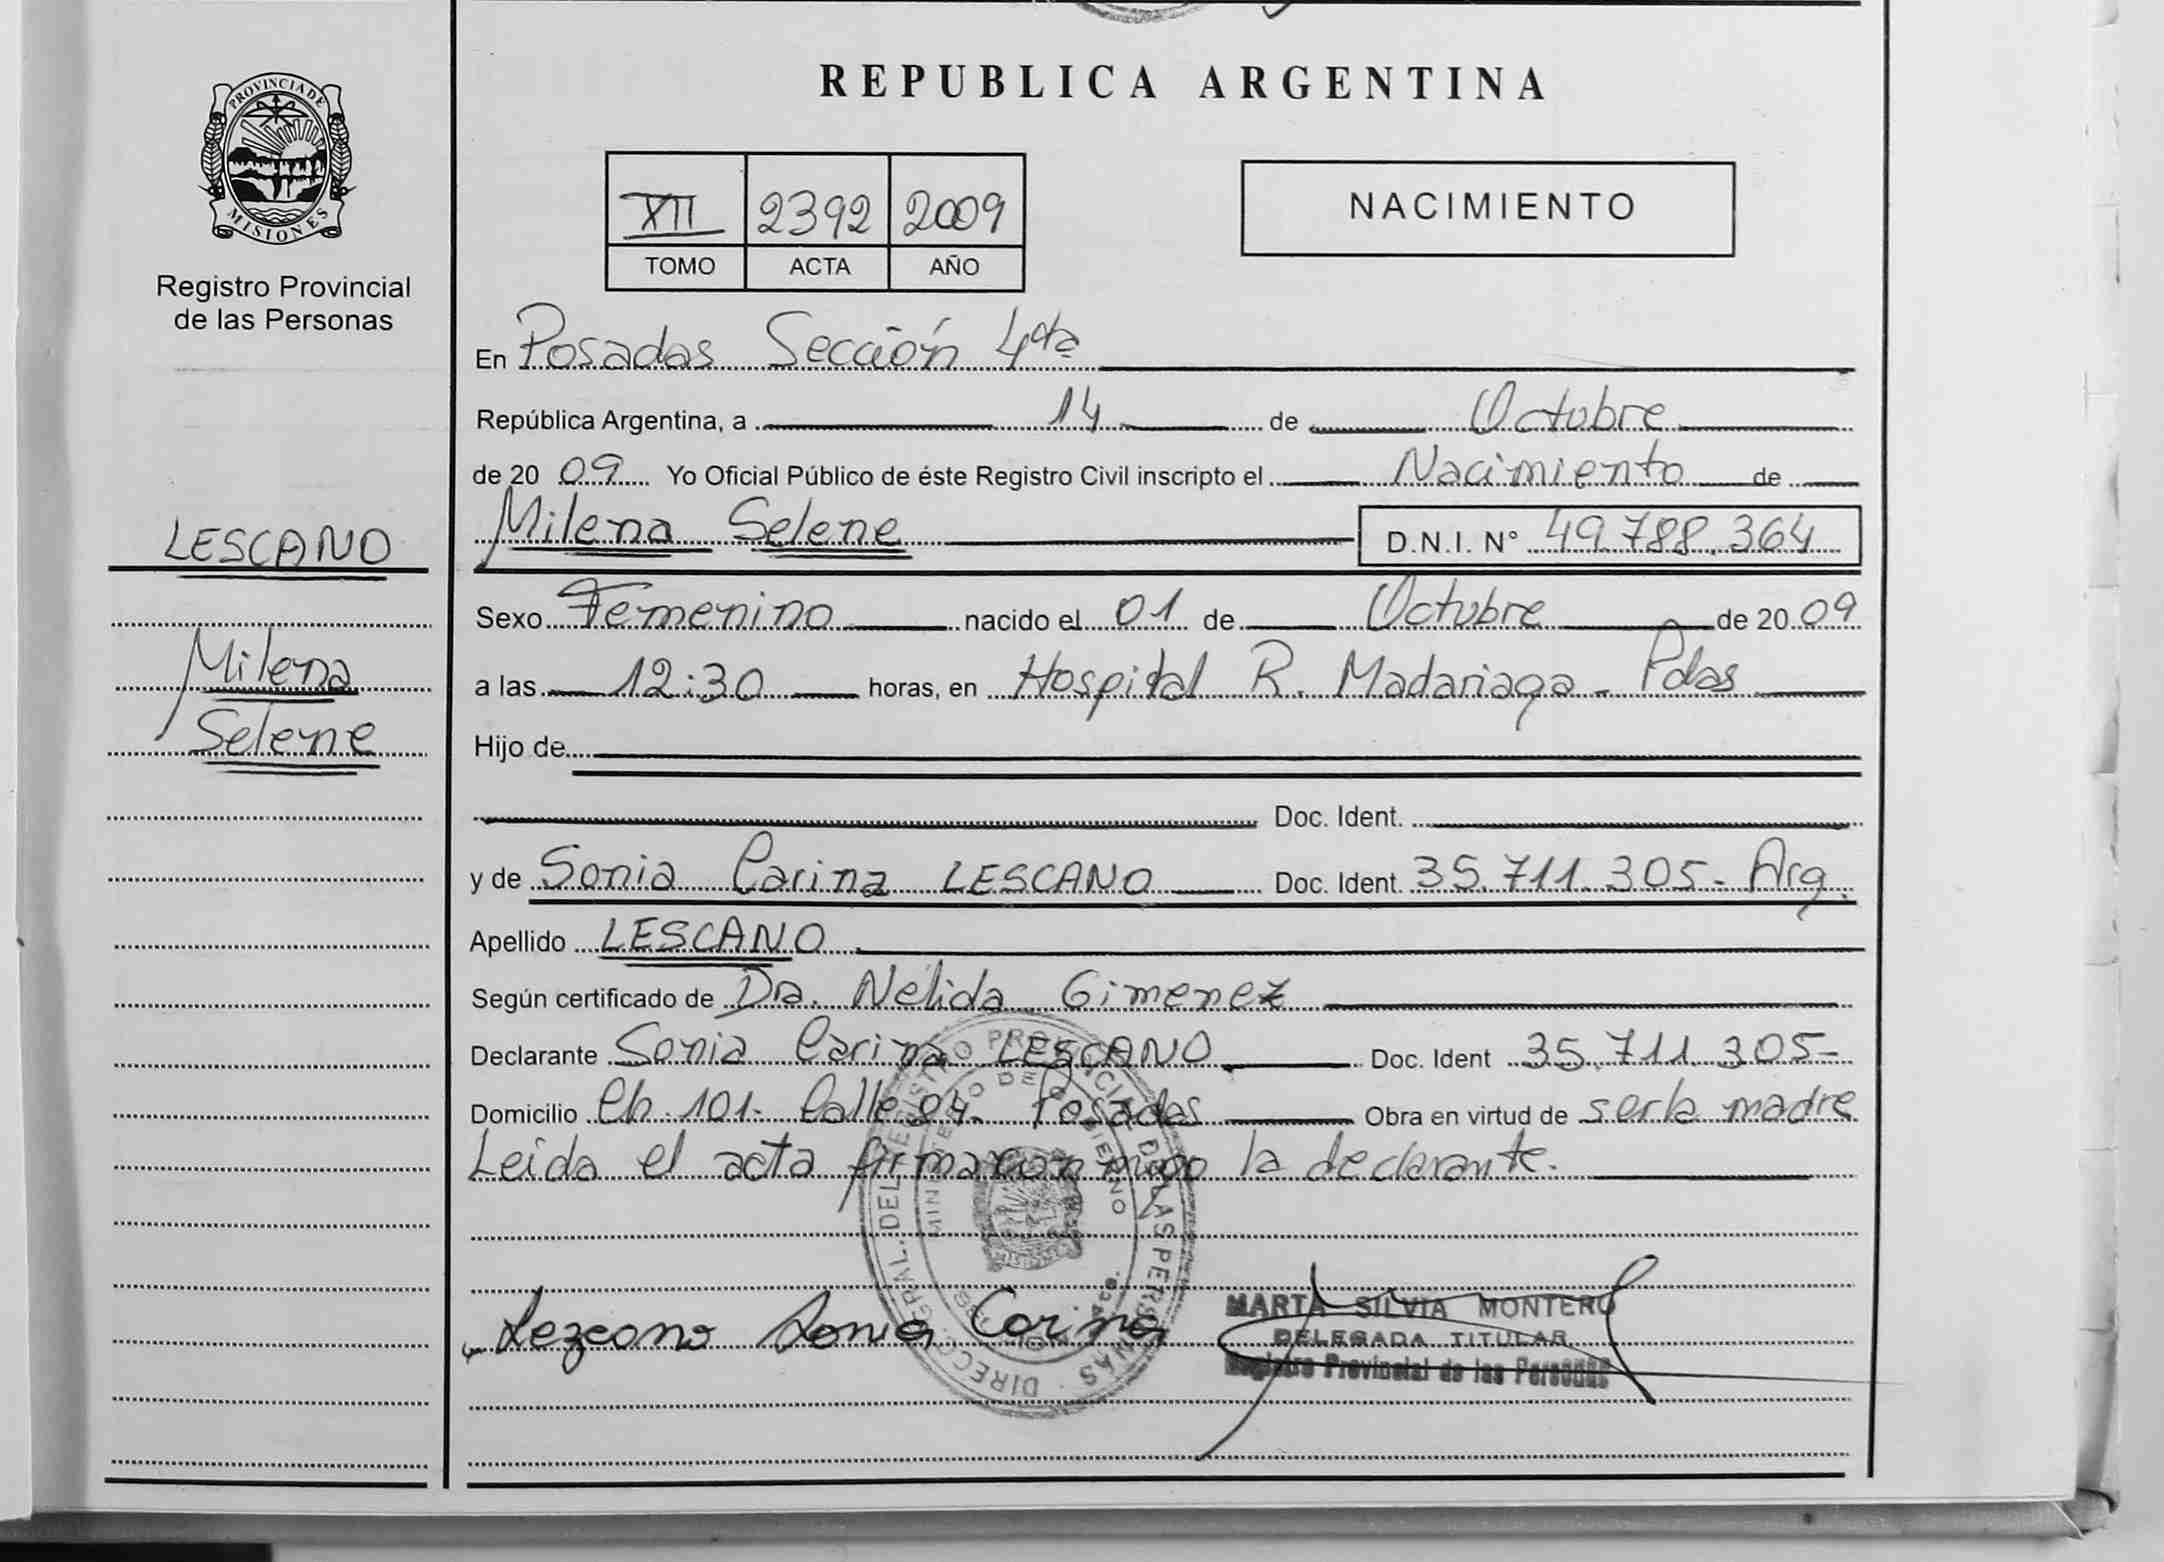 REPUBLICA ARGENTINA
PROVINCIA DE
MISIONES
Registro Provincial
de las Personas
XII 2392 2009
TOMO ACTA AÑO
NACIMIENTO
En Posadas Sección 4ta
República Argentina, a 14 de Octubre
de 20 09 Yo Oficial Público de éste Registro Civil inscripto el Nacimiento de
LESCANO
Milena Selene D.N.I. N° 49.788.364
Sexo Femenino nacido el 01 de Octubre de 20 09
Milena
a las 12:30 horas, en Hospital R. Madariaga - Pdas
Selene
Hijo de
Doc. Ident.
y de Sonia Carina LESCANO Doc. Ident. 35.711.305- Arg.
Apellido LESCANO
Según certificado de Dra. Nelida Gimenez
Declarante Sonia Carina LESCANO Doc. Ident 35.711.305-
Domicilio Ch. 101- Calle 84- Posadas Obra en virtud de ser la madre
Leida el acta firma conmigo la declarante.
Lezcano Sonia Carina
MARTA SILVIA MONTERO
DELEGADA TITULAR
Registro Provincial de las Personas